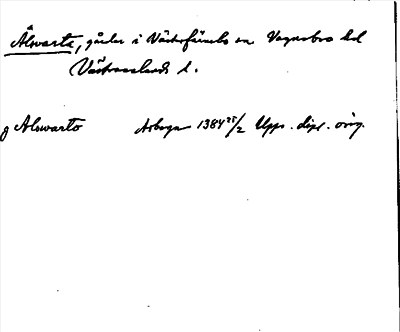 Älsvarta, gårdar i Västerfärnebo sn Vagnsbro hd
Västmanlands l.
g Alswarto Arboga 1384 25/2 Upps. dipl. orig.